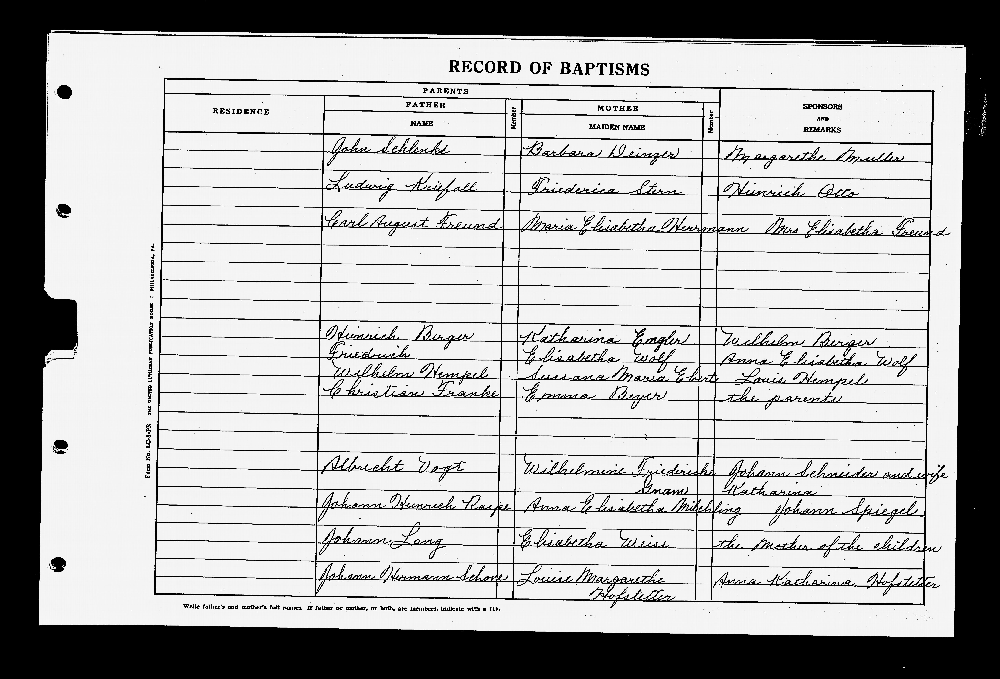 RECORD OF BAPTISMS
PARENTS
RESIDENCE FATHER Member MOTHER Member SPONSORS
AND
REMARKS
NAME MAIDEN NAME
John Schlenke Barbara Deinzer Margarethe Mueller
Ludwig Friederica Stern Heinrich Otto
Carl August Freund Maria Elisabetha Herrmann Mrs Elisabetha Freund
Heinrich Burger Katharina Engler Wilhelm Burger
Friedrich Elisabetha Wolf Anna Elisabetha Wolf
Wilhelm Hempel Sussana Maria Eberts Louis Hempel
Christian Franke Emma Beyer the parents
Albrecht Vogt Wilhelmine Friedericke Johann Schneider and wife
Gnam Katharina
Johann Heinrich Anna Elisabetha Johann Spiegel
Johann Lang Elisabetha Weiss the Mother of the children
Johann Hermann Schone Louise Margarethe Anna Katharina Hofstetter
Hofstetter
Write father's and mother's full names. If father or mother, or both, are members, indicate with a